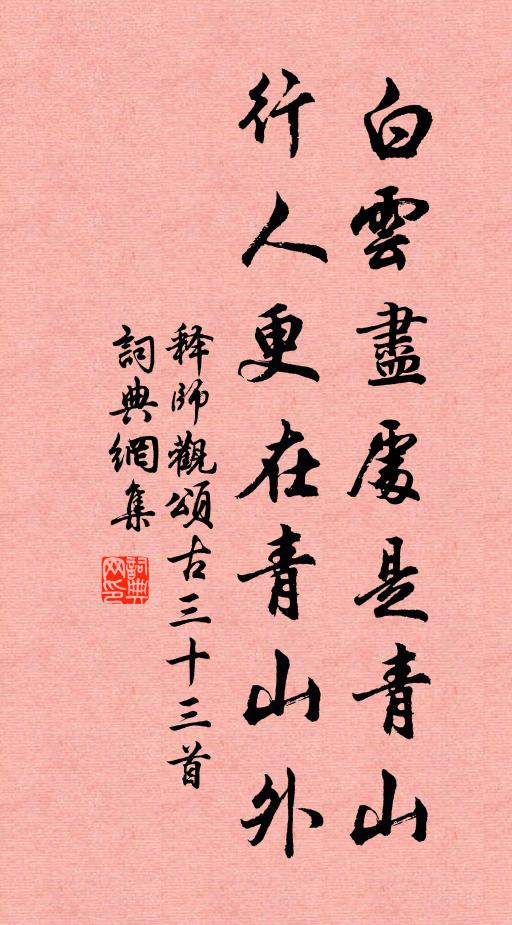 白雲盡處是青山
行人更在青山外
释師觀頌古三十三首
詞典網集
詞典网印